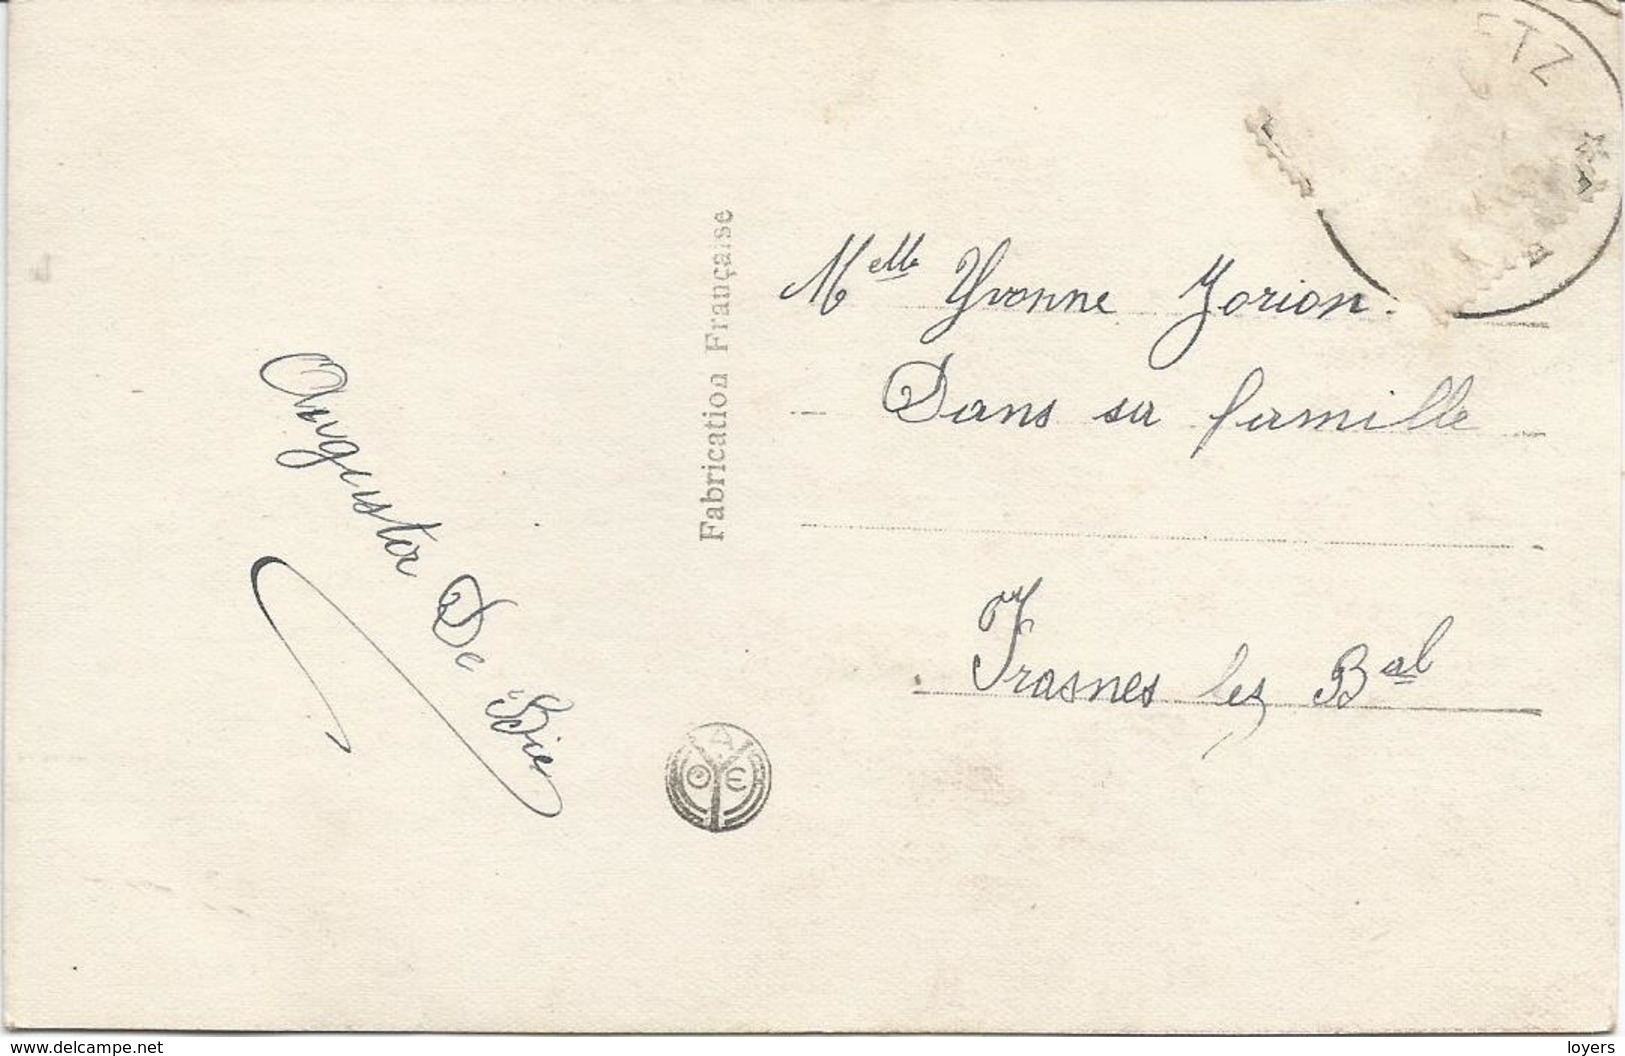 Augusta De Bie
Fabrication Française
O E
TZ
Melle Yvonne Jorion.
Dans sa famille
Frasnes les Bal
www.delcampe.net
loyers